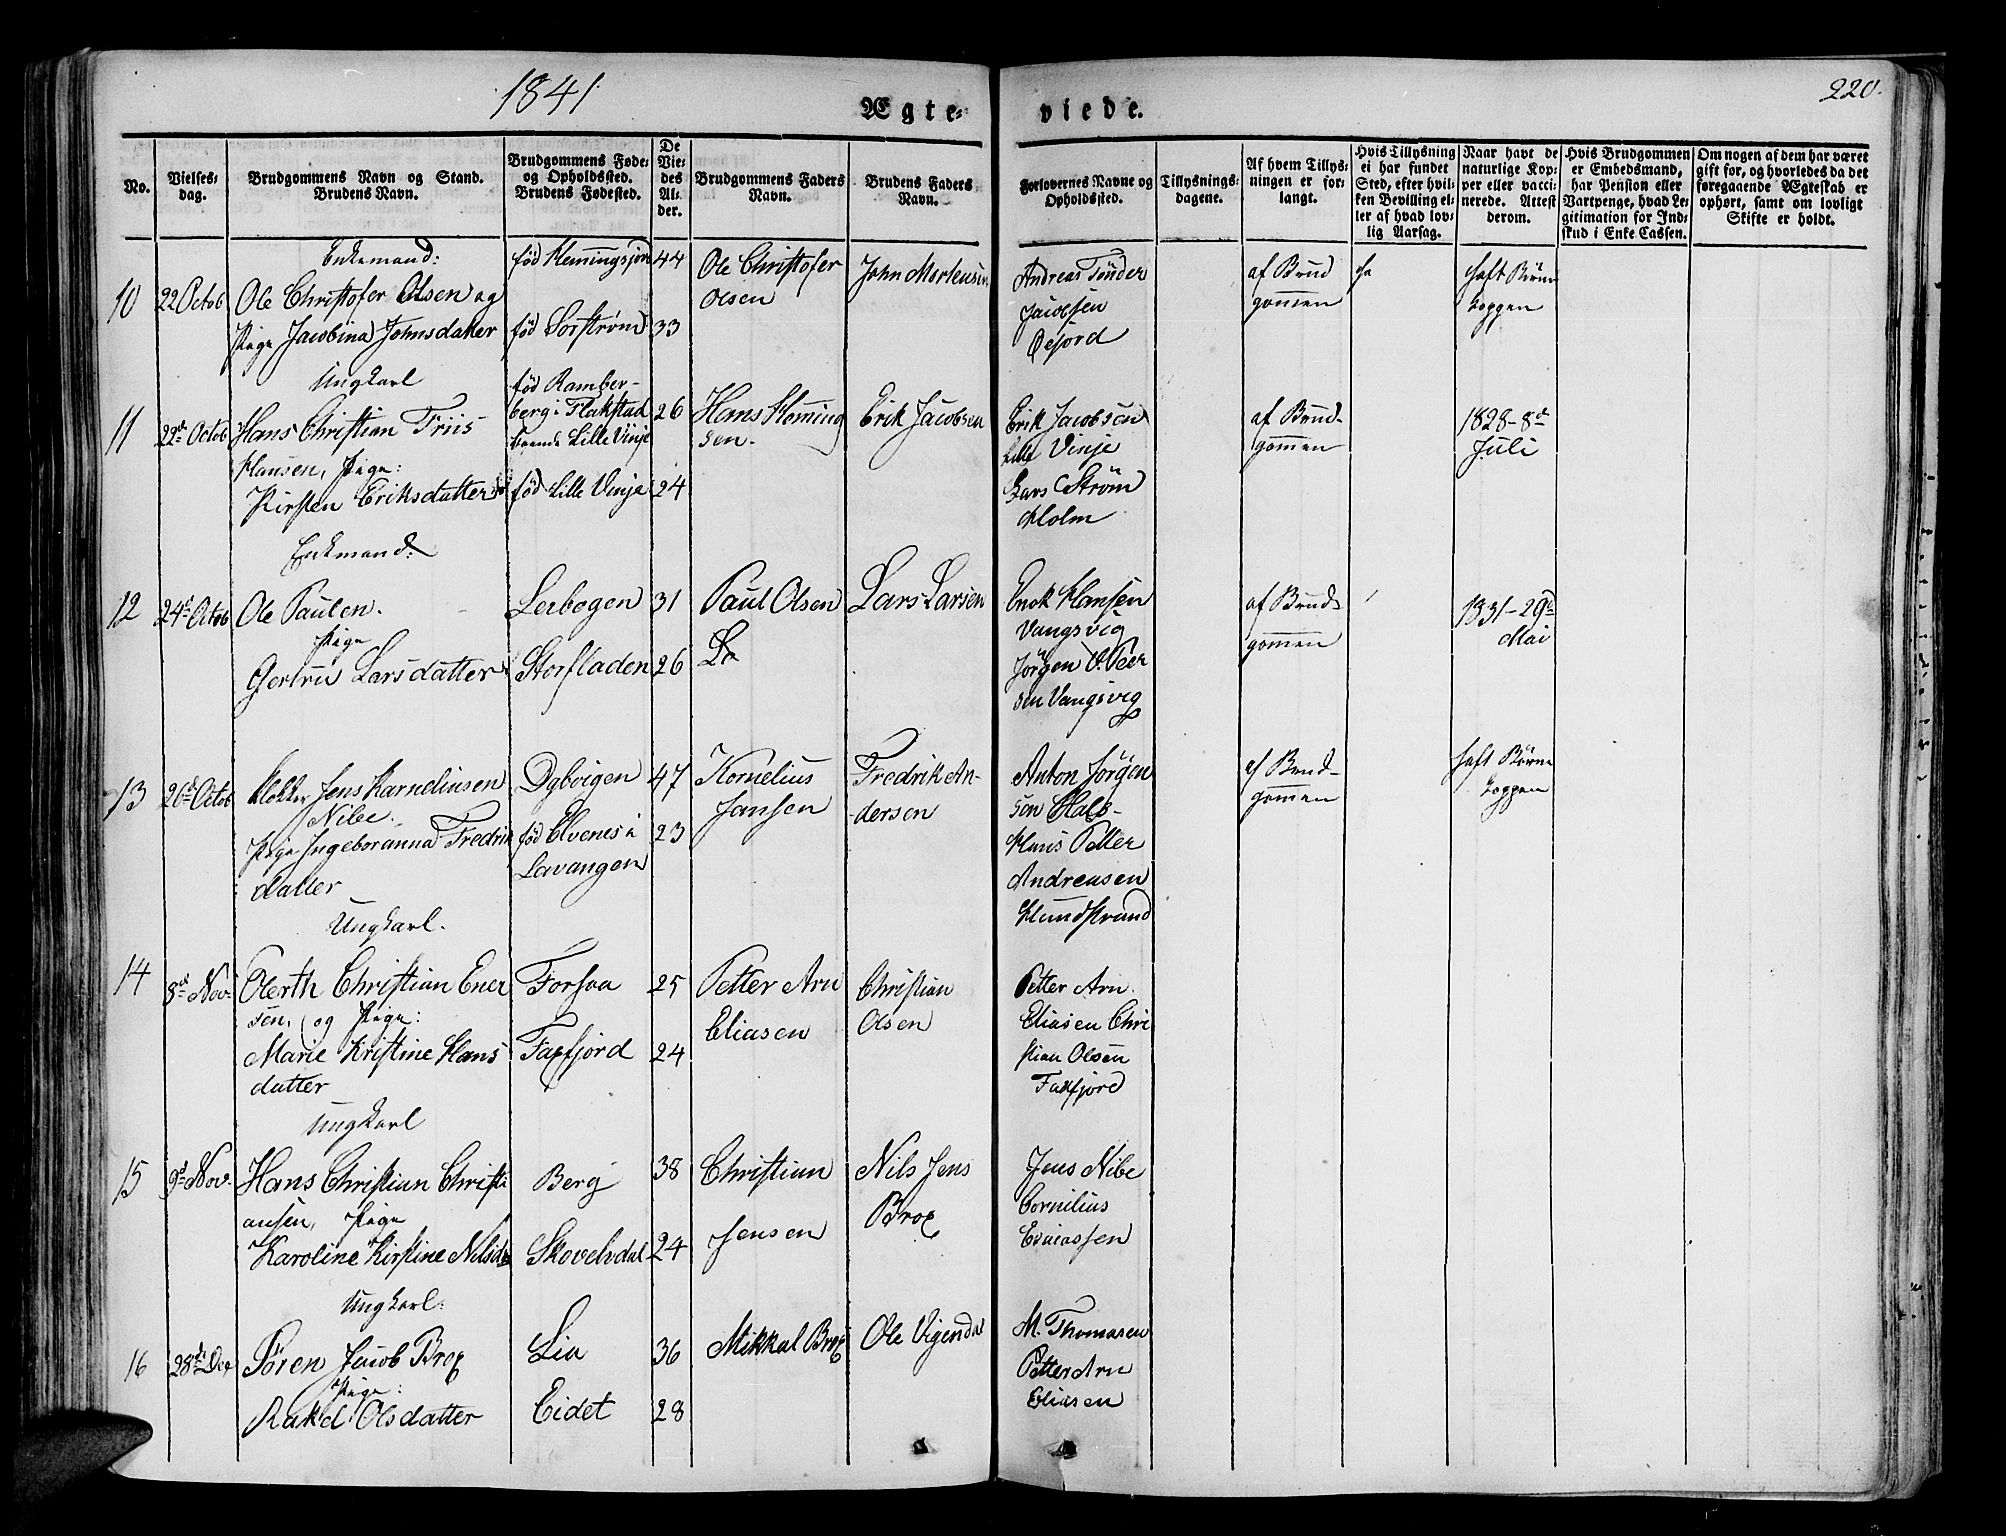 1841
220.
Ægte=
viede.
No.
Vielses=
dag.
Brudgommens Navn og Stand.
Brudens Navn.
Brudgommens Føde=
og Opholdssted.
Brudens Fødested.
De
Vie=
des
Al=
der.
Brudgommens Faders
Navn.
Brudens Faders
Navn.
Forlovernes Navne og
Opholdssted.
Tillysnings=
dagene.
Af hvem Tillys=
ningen er for=
langt.
Hvis Tillysning
ei har fundet
Sted, efter hvil=
ken Bevilling el=
ler af hvad lov=
lig Aarsag.
Naar havt de
naturlige Kop=
per eller vacci=
nerede. Attest
derom.
Hvis Brudgommen
er Embedsmand,
har Pension eller
Vartpenge, hvad Le=
gitimation for Ind=
skud i Enke Cassen.
Om nogen af dem har været
gift før, og hvorledes da det
foregaaende Ægteskab er
ophørt, samt om lovligt
Skifte er holdt.
10
22 Octob
Enkemand:
Ole Christofer Olsen og
Pige Jacobina Johnsdatter
fød Hemmingsjord
fød Sorstrøm
44
33
Ole Christofer
Olsen
John Mortensen
Andreas Tønder
Jacobsen
Øefjord
af Brud
gommen
haft Børne
koppen
11
22de Octob
Ungkarl
Hans Christian Friis
Hansen, Pige:
Kirsten Eriksdatter
fød Ramber-
berg i Flakstad
boende Lille Vinje
fød Lille Vinje
26
24
Hans Hemming
sen.
Erik Jacobsen
Erik Jacobsen
Lille Vinje
Lars Strøm
Holm
af Brud-
gommen
1828-8de
Juli
12
24de Octob
Enkemand:
Ole Paulen.
Pige
Gertru Larsdatter
Lerbogen
Storsladen
31
26
Paul Olsen
La
Lars Larsen
Enok Hansen
Vangsvig
Jørgen V. Peer
sen Vangsvig
af Brud-
gommen
1831-29de
Mai
13
20de Octob
Klokker Jens Karneliusen
Nibe.
Pige Ingeboranna Fredrik
datter
Dybvigen
fød Elvenes i
Lavangen
47
23
Kornelius
Jansen
Fredrik An-
dersen
Anton Jørgen
sen Hals-
Hans Petter
Andreasen
Hundstrand
af Brud-
gommen
haft Børne
koppen
14
8de Nov-
Ungkarl.
Olerth Christian Ener
sen, og Pige:
Marie Kristine Hans
datter
Forsaa
Faxfjord
25
24
Petter Arn
Eliasen
Christian
Olsen
Petter Arn.
Eliasen Chri
stian Olsen
Faxfjord
15
9de Nov.
Ungkarl
Hans Christian Christi
ansen, Pige
Karoline Kirstine Nilsd
Berg
Skovelvdal
38
24
Christian
Jensen
Nils Jens
Brox
Jens Nibe
Cornilius
Esaiassen
16
28de Dec
Ungkarl:
Søren Jacob Brox
Pige:
Rakel Olsdatter
Lia
Eidet
36
28
Mikkal Brox
Ole Vigendal
M. Thomasen
Petter Arn
Eliasen